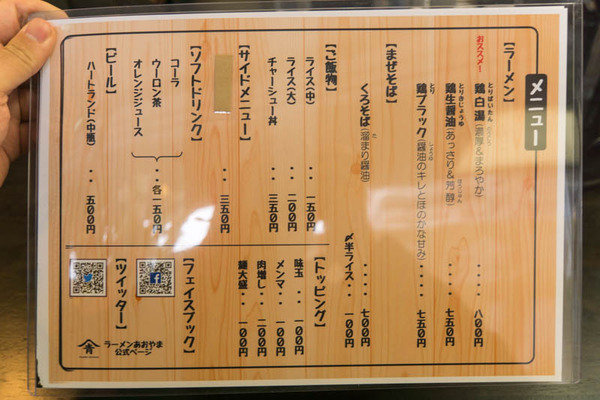 メニュー
【ラーメン】
おススメ!
鶏白湯(濃厚&まろやか)‥‥八〇〇円
とりぱいたん
鶏生醤油(あっさり&芳醇)‥‥七五〇円
とりきじょうゆ
鶏ブラック(醤油のキレとほのかな甘み)‥‥七五〇円
とり
しょうゆ
【まぜそば】
くろそば(溜まり醤油)‥‥七〇〇円
た
〆半ライス‥一〇〇円
【ご飯物】
ライス(中)‥一五〇円
ライス(大)‥二〇〇円
チャーシュー丼‥三五〇円
【サイドメニュー】
‥三五〇円
【ソフトドリンク】
コーラ
ウーロン茶
オレンジジュース
‥各一五〇円
【ビール】
ハートランド(中瓶)‥五〇〇円
【トッピング】
味玉‥一〇〇円
メンマ‥一〇〇円
肉増し‥二〇〇円
麺大盛‥一〇〇円
【フェイスブック】
【ツイッター】
ラーメンあおやま
公式ページ
青